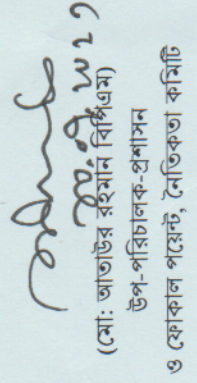 (মো: আতাউর রহমান বিপিএম)
উপ-পরিচালক-প্রশাসন
ও ফোকাল পয়েন্ট, নৈতিকতা কমিটি